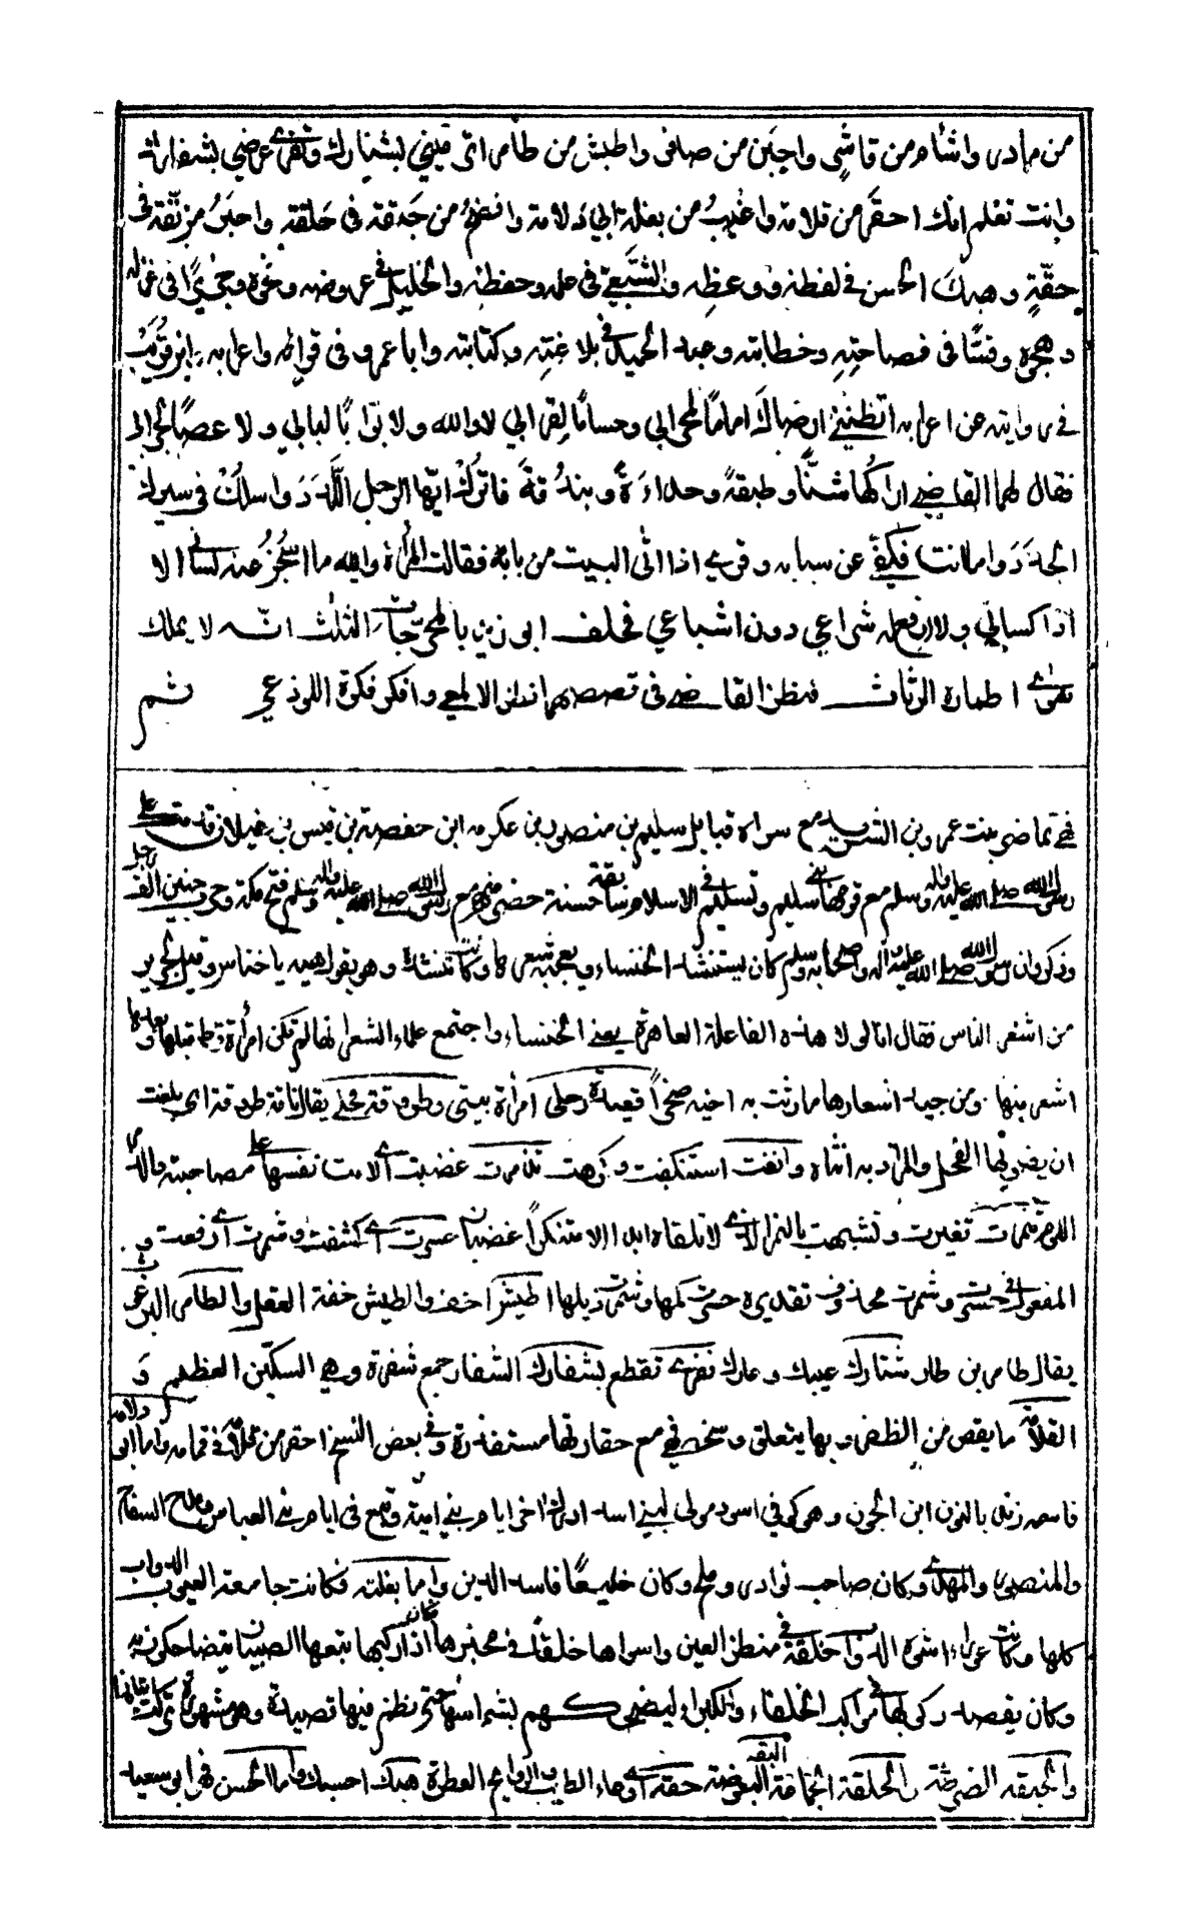 من مادر واشأم من قاشر واجبن من صافر واطيش من طامر اترمينني بشنارك وتفري عرضي بشفارك
وانت تعلم انك احقر من قلامة واعيب من بغلة ابي دلامة وافضح من حبقة في حلقة واحير من بقة في
حقة وهبك الحسن في لفظه ووعظه والشعبي في علمه وحفظه والخليل في عروضه ونحوه وجريرا في غزله
وهجوه وقسا في فصاحته وخطابته وعبد الحميد في بلاغته وكتابته وابا عمرو في قرائته واعرابه وابن قريب
في روايته عن اعرابه اتظنني ارضاك اماما لمحرابي وحساما لقرابي لا والله ولا بوابا لبابي ولا عصا لجرابي
فقال لهما القاضي اراكما شنا وطبقة وحداءة وبندقة فاترك ايها الرجل اللدد واسلك في سيرك
الجدد واما انت فكفي عن سبابه وقري اذا اتى البيت من بابه فقالت المرأة والله ما اسجن عنه لساني الا
اذا كساني ولا ارفع له شراعي دون اشباعي فحلف ابو زيد بالمحرجات الثلث انه لا يملك
سوى اطماره الرثاث فنظر القاضي في قصصهما نظر الالمعي وافكر فكرة اللوذعي ثم
هي تماضر بنت عمرو بن الشريد مع سراة قبايل سليم بن منصور بن عكرمه ابن خفصة بن قيس بن غيلان قدمت على
رسول الله صلى الله عليه وآله وسلم مع قومها بني سليم وتسليم في الاسلام سابقة حسنة حضر منهم مع رسول الله صلى الله عليه وآله وسلم فتح مكة وحرب حنين الف رجل
وذكروا ان رسول الله صلى الله عليه وآله واصحابه وسلم كان يستنشد الخنساء ويعجبه شعرها وكانت تنشده وهو يقول هيه يا خناس وقيل لجرير
من اشعر الناس فقال انا لولا هذه الفاعلة العاهرة يعني الخنساء واجتمع علماء الشعر انها لم تكن امرأة قط قبلها ولا بعدها
اشعر منها ومن جيد اشعارها ما رثت به اخيه صخرا قعيدة رحلي امرأة بيتي وطروقة فحلي يقال ناقة طروقة اي بلغت
ان يضربها الفحل والمراد به انثاه وانفت استنكفت وكرهت تذمرت غضبت اي لامت نفسها على مصاحبته والذمر
اللوم تنمرت تغيرت وتشبهت بالنمر الذي لا تلقاه ابدا الا متنكرا غضبان حسرت اي كشفت وشمرت اي رفعت و
المفعول في حسرت وشمرت محذوف تقديره حسرت كمها وشمرت ذيلها اطيش اخف والطيش خفة العقل والطامر البرغوث
يقال طامر بن طامر شنارك عيبك وعارك تفري تقطع بشفارك الشفار جمع شفرة وهي السكين العظيم و
القلامة ما يقص من الظفر وبها يتعلق وسخ في مع حقارتها مستقذرة وفي بعض النسخ احقر من قلامة في قمامة واما ابو دلامه
فاسمه زند بالنون ابن الجون وهو كوفي اسود مولى لبني اسد ادرك اخر ايام بني امية ونبع في ايام بني العباس ومدح السفاح
والمنصور والمهدي وكان صاحب نوادر وملح وكان خليعا فاسد الدين واما بغلته فكانت جامعة لعيوب الدواب
كلها وكانت اشوه الدواب خلقة في منظر العين واسواها خلقا في مخبرها وكان اذا ركبها تبعها الصبيان يتضاحكون به
وكان يقصد ركوبها في مواكب الخلفاء والكبراء ليضحكهم بشماسها حتى نظم فيها قصيدة وهي مشهورة
والحبقه الضرطة والحلقة الجماعة البقه البعوضة حقة اي وعاء الطيب والروايح العطرة هبك احسبك واما الحسن فهو ابو سعيد